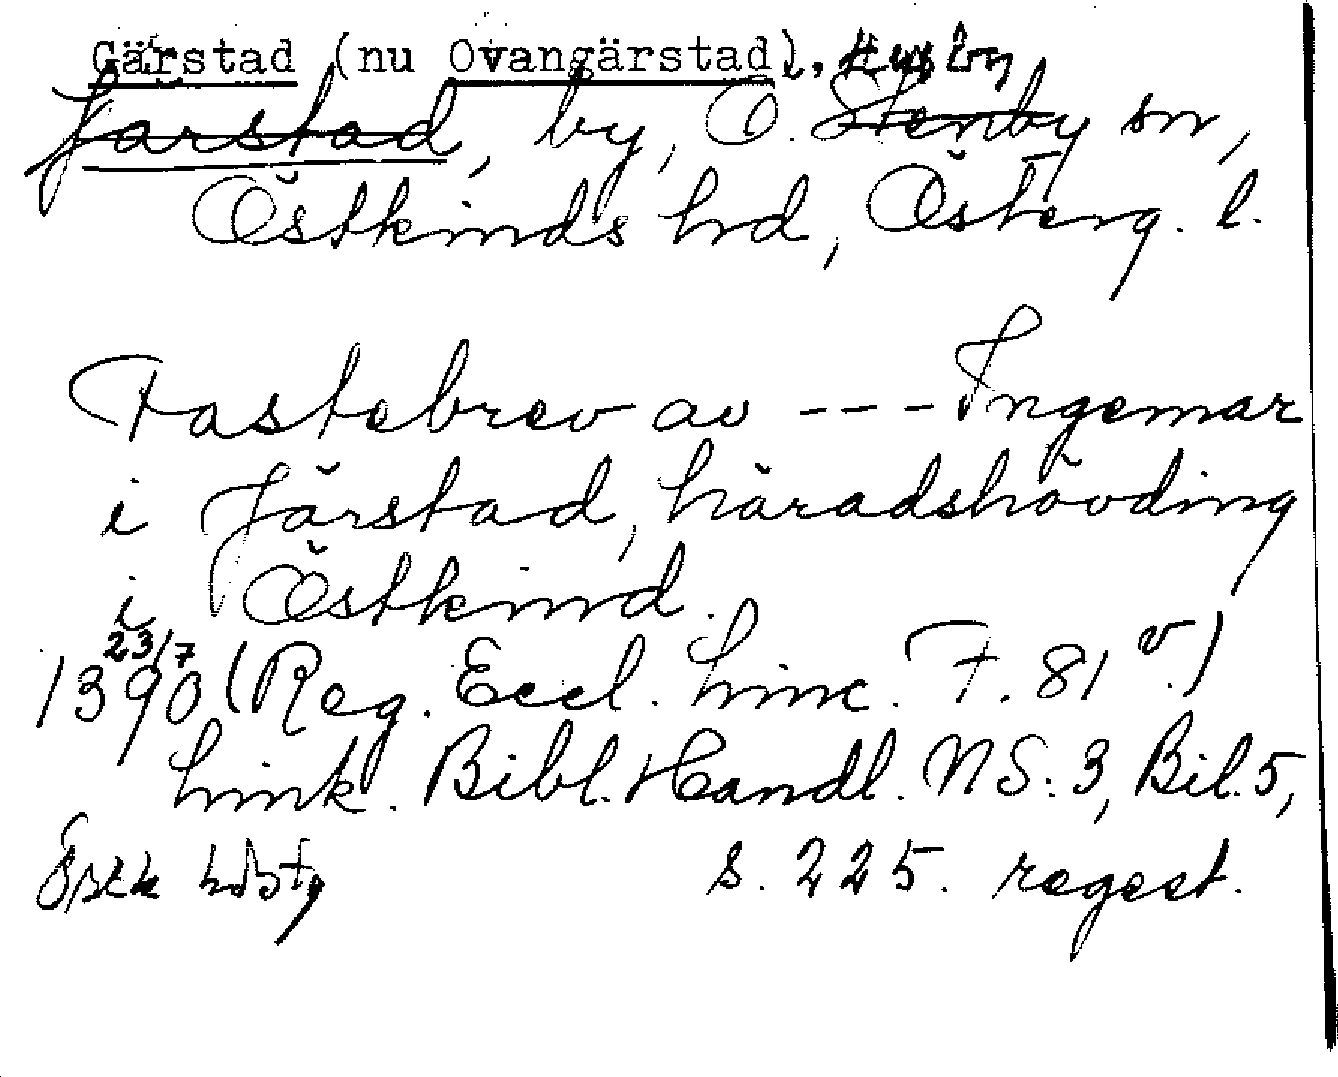 Gärstad (nu Ovangärstad), Husby
Jarstad, by, Ö. Stenby sn,
Östkinds hd, Österg. l.
Fastebrev av --- Ingemar
i Järstad, häradshövding
i Östkind.
23/7
1390 (Reg. Eccl. Linc. F. 81 v.)
Link. Bibl. Handl. NS. 3, Bil. 5,
s. 225. regest.